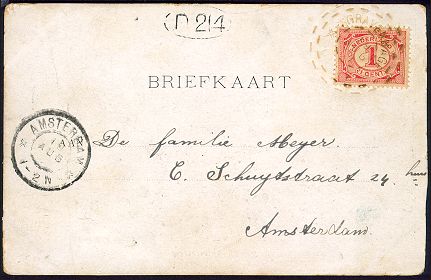 D 24
BRIEFKAART
1
CENT
AMSTERDAM
AUG
1-2N
De familie Meyer.
C. Schuytstraat 24 huis
Amsterdam.